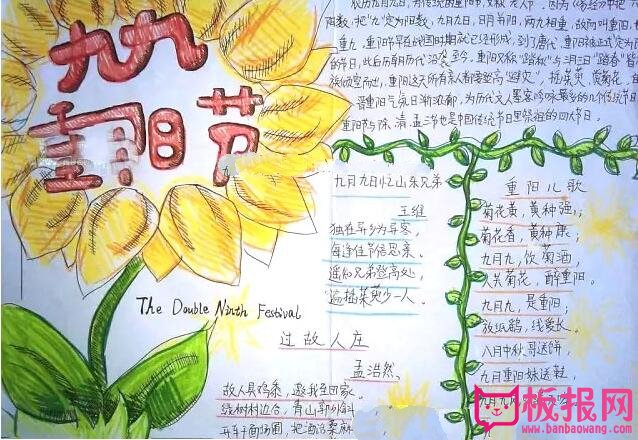 九九
重阳节
农历九月九日，为传统的重阳节，又称"老人节"。因为《易经》中把"六"
阳数，把"九"定为阳数，九月九日，日月并阳，两九相重，故而叫重阳，也
重九，重阳节早在战国时期就已经形成，到了唐代，重阳被正式定为
的节日，此后历朝历代沿袭至今。重阳又称"踏秋"与三月三日"踏春"皆
族倾室而出，重阳这天所有亲人都要登高"避灾"，插茱萸、赏菊花。
晋重阳气氛日渐浓郁，为历代文人墨客吟咏最多的几个传统节日
重阳节与除、清、盂三节也是中国传统节日里祭祖的四大节日。
九月九日忆山东兄弟
王维
独在异乡为异客，
每逢佳节倍思亲。
遥知兄弟登高处，
遍插茱萸少一人。
重阳儿歌
菊花黄，黄种强；
菊花香，黄种康；
九月九，饮菊酒，
人共菊花，醉重阳。
九月九，是重阳；
放纸鹞，线爱长。
八月中秋哥送饼，
九日重阳妹送鞋，
The Double Ninth Festival
过故人庄
孟浩然
故人具鸡黍，邀我至田家。
绿树村边合，青山郭外斜。
开轩面场圃，把酒话桑麻
板报网
www.banbaowang.com